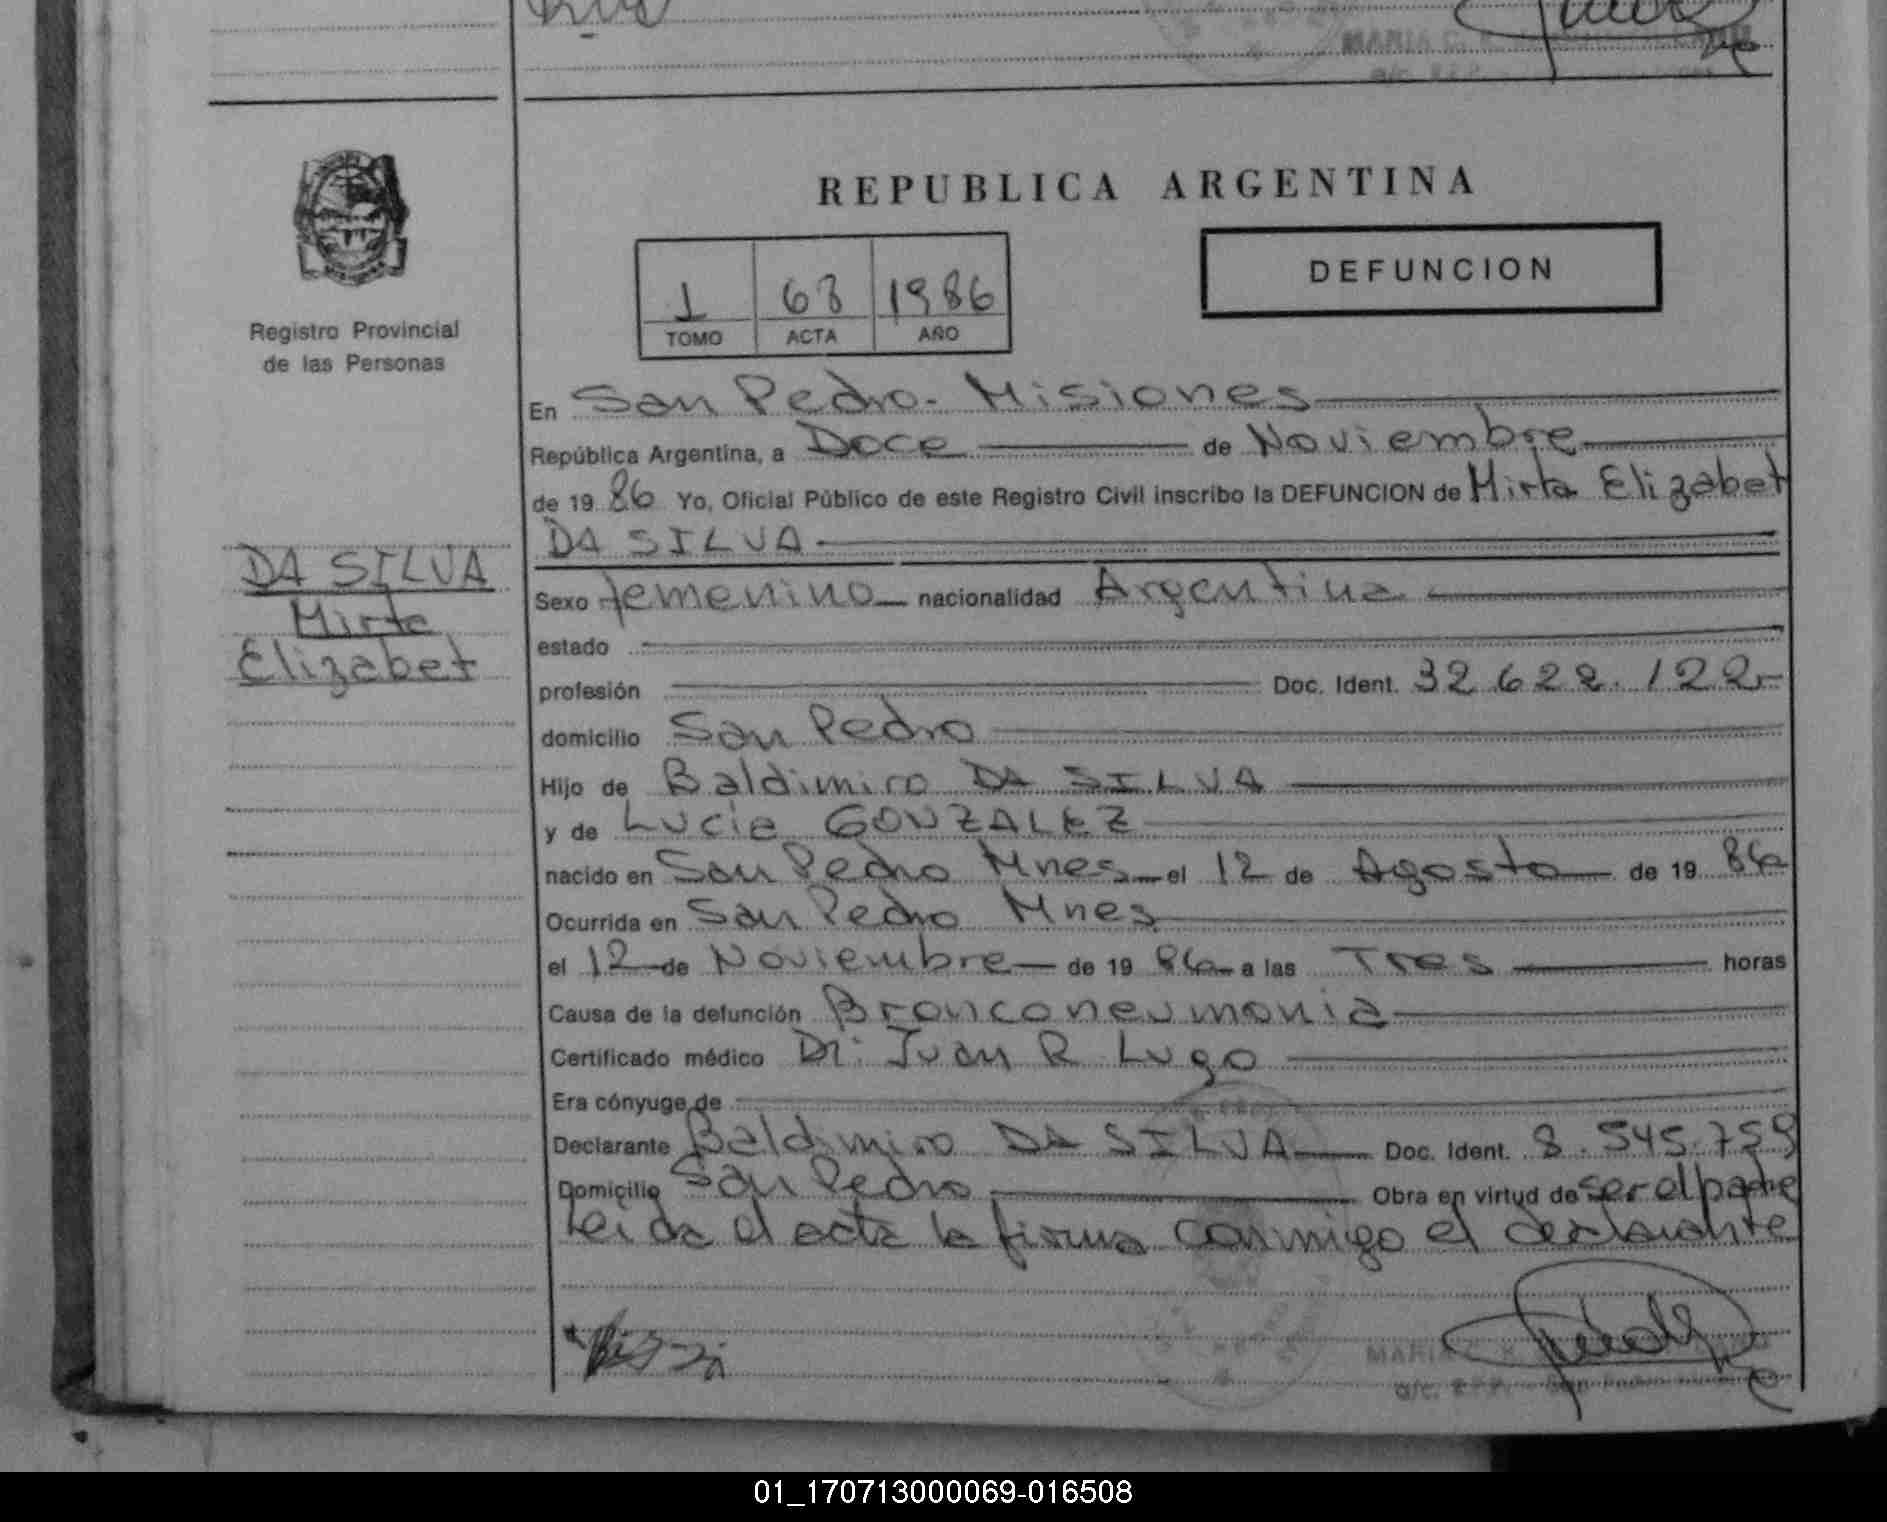 REPUBLICA ARGENTINA
DEFUNCION
1 63 1986
TOMO ACTA AÑO
Registro Provincial
de las Personas
En San Pedro - Misiones
República Argentina, a Doce de Noviembre
de 19 86 Yo, Oficial Público de este Registro Civil inscribo la DEFUNCION de Mirta Elizabet
DA SILVA
DA SILVA
Mirta
Elizabet
Sexo femenino nacionalidad Argentina
estado
profesión Doc. Ident. 32.622.122
domicilio San Pedro
Hijo de Baldimiro DA SILVA
y de Lucia GONZALEZ
nacido en San Pedro Mnes el 12 de Agosto de 19 86
Ocurrida en San Pedro Mnes
el 12 de Noviembre de 19 86 a las Tres horas
Causa de la defunción Bronconeumonia
Certificado médico Dr. Juan R Lugo
Era cónyuge de
Declarante Baldimiro DA SILVA Doc. Ident. 8.545.759
Domicilio San Pedro Obra en virtud de ser el padre
Leida el acta la firma conmigo el declarante
MARIA
a/c. R.P.P. - San Pedro
01_170713000069-016508